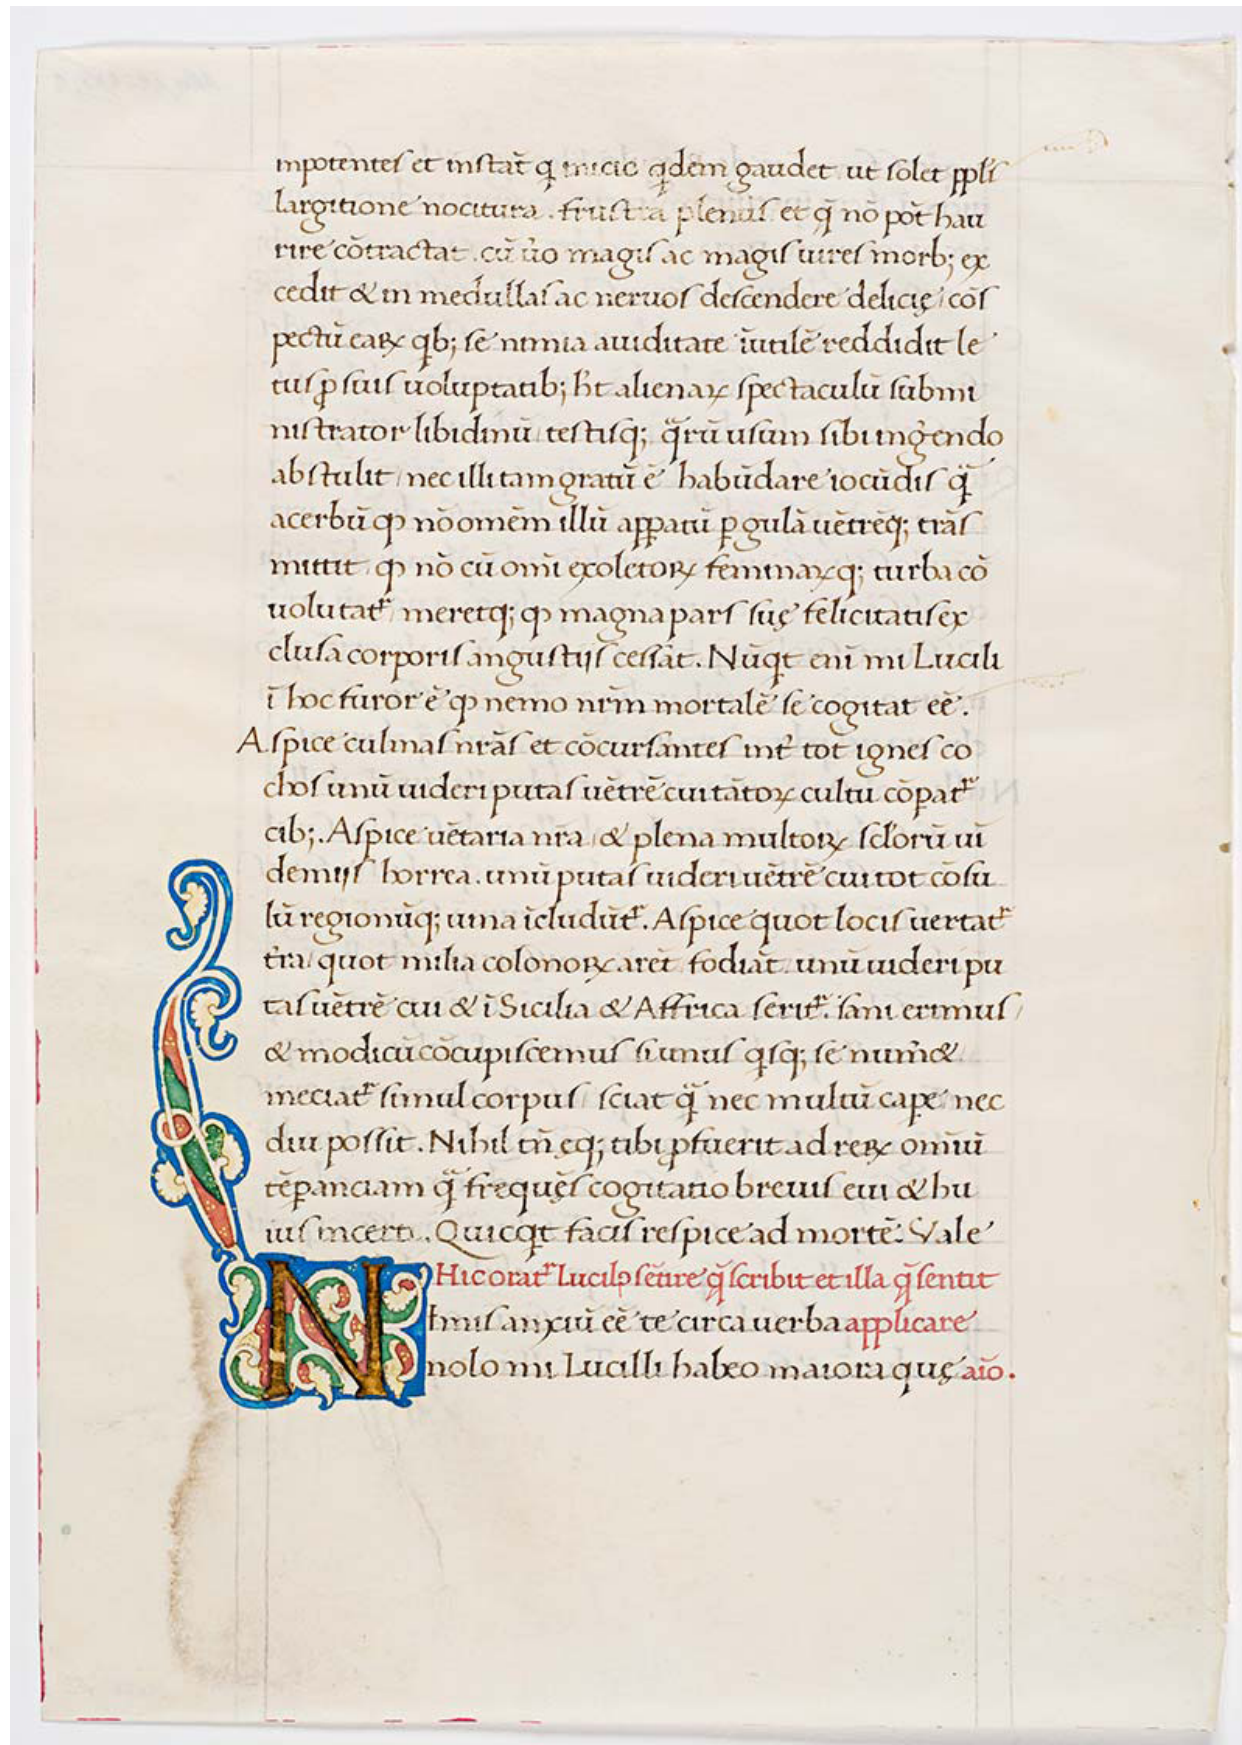 inpotentes et instāt q̨ inicio qͥdem gaudet ut solet ppl̄s
largitione nocitura. frustra plenus et q̄ nō pōt hau
rire cōtractat. cū ūo magis ac magis uires morb; ex
cedit & in medullas ac neruos descendere delicię cōs
pectū eaꝝ qͥb; se nimia auiditate īutilē reddidit le
tus ꝓ suis uoluptatib; h̄t alienaꝝ spectaculū submi
nistrator libidinū testisq; qᷓrū usum sibi ingēendo
abstulit nec illi tam gratū ē habūdare iocūdis qᷓ
acerbū ꝙ nō omēm illū apꝑatū ꝑ gulā uētrēq; trās
mittit ꝙ nō cū omī exoletoꝝ feminaꝝq; turba cō
uolutatᷣ meretq; ꝙ magna pars suę felicitatis ex
clusa corporis angustijs cessāt. Nūqͥt enī mi Lucili
ī hoc furor ē ꝙ nemo nr̄m mortalē se cogitat eē.
Aspice culinas nrās et cōcursantes int̄ tot ignes co
chos unū uideri putas uētrē cui tātoꝝ cultū cōpatᷣ
cib;. Aspice uētaria nr̄a & plena multoꝝ scl̄orū uī
demijs horrea. unū putas uideri uētrē cui tot cōsu
lū regionūq; uina īcludūtᷣ. Aspice quot locis uertatᷣ
t̄ra quot milia colonoꝝ arēt fodiāt unū uideri pu
tas uētrē cui & ī Sicilia & Affrica seritᷣ. sani erimus
& modicū cōcupiscemus si unus qͥsq; se num̄&
meciatᷣ simul corpus sciat qᷓ nec multū cape nec
diu possit. Nihil tn̄ ęq; tibi ꝓfuerit ad reꝝ omniū
tēꝑanciam qᷓ frequēs cogitatio breuis eui & hu
ius incerti. Quicqͥt facis respice ad mortē. Vale
Hic oratᷣ Lucilꝯ sētire q̄ scribit et illa q̄ sentit
Nimis anxiū eē te circa uerba applicare
nolo mi Lucilli habeo maiora quę aīo.